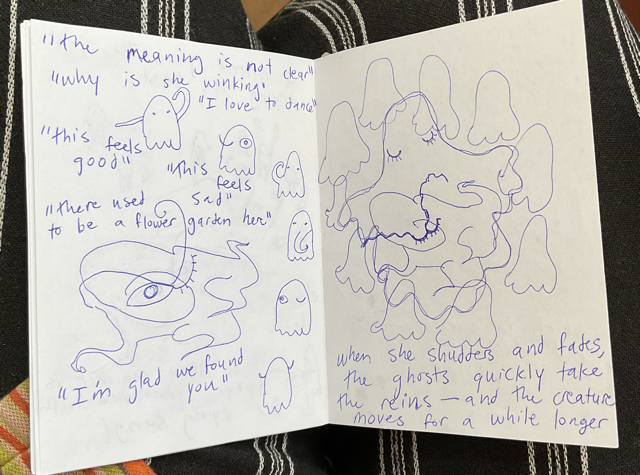 "the meaning is not clear"
"why is she winking"
"I love to dance"
"this feels
good"
"this
feels
sad"
"there used
to be a flower garden here"
"I'm glad we found
you"
when she shudders and fades,
the ghosts quickly take
the reins — and the creature
moves for a while longer